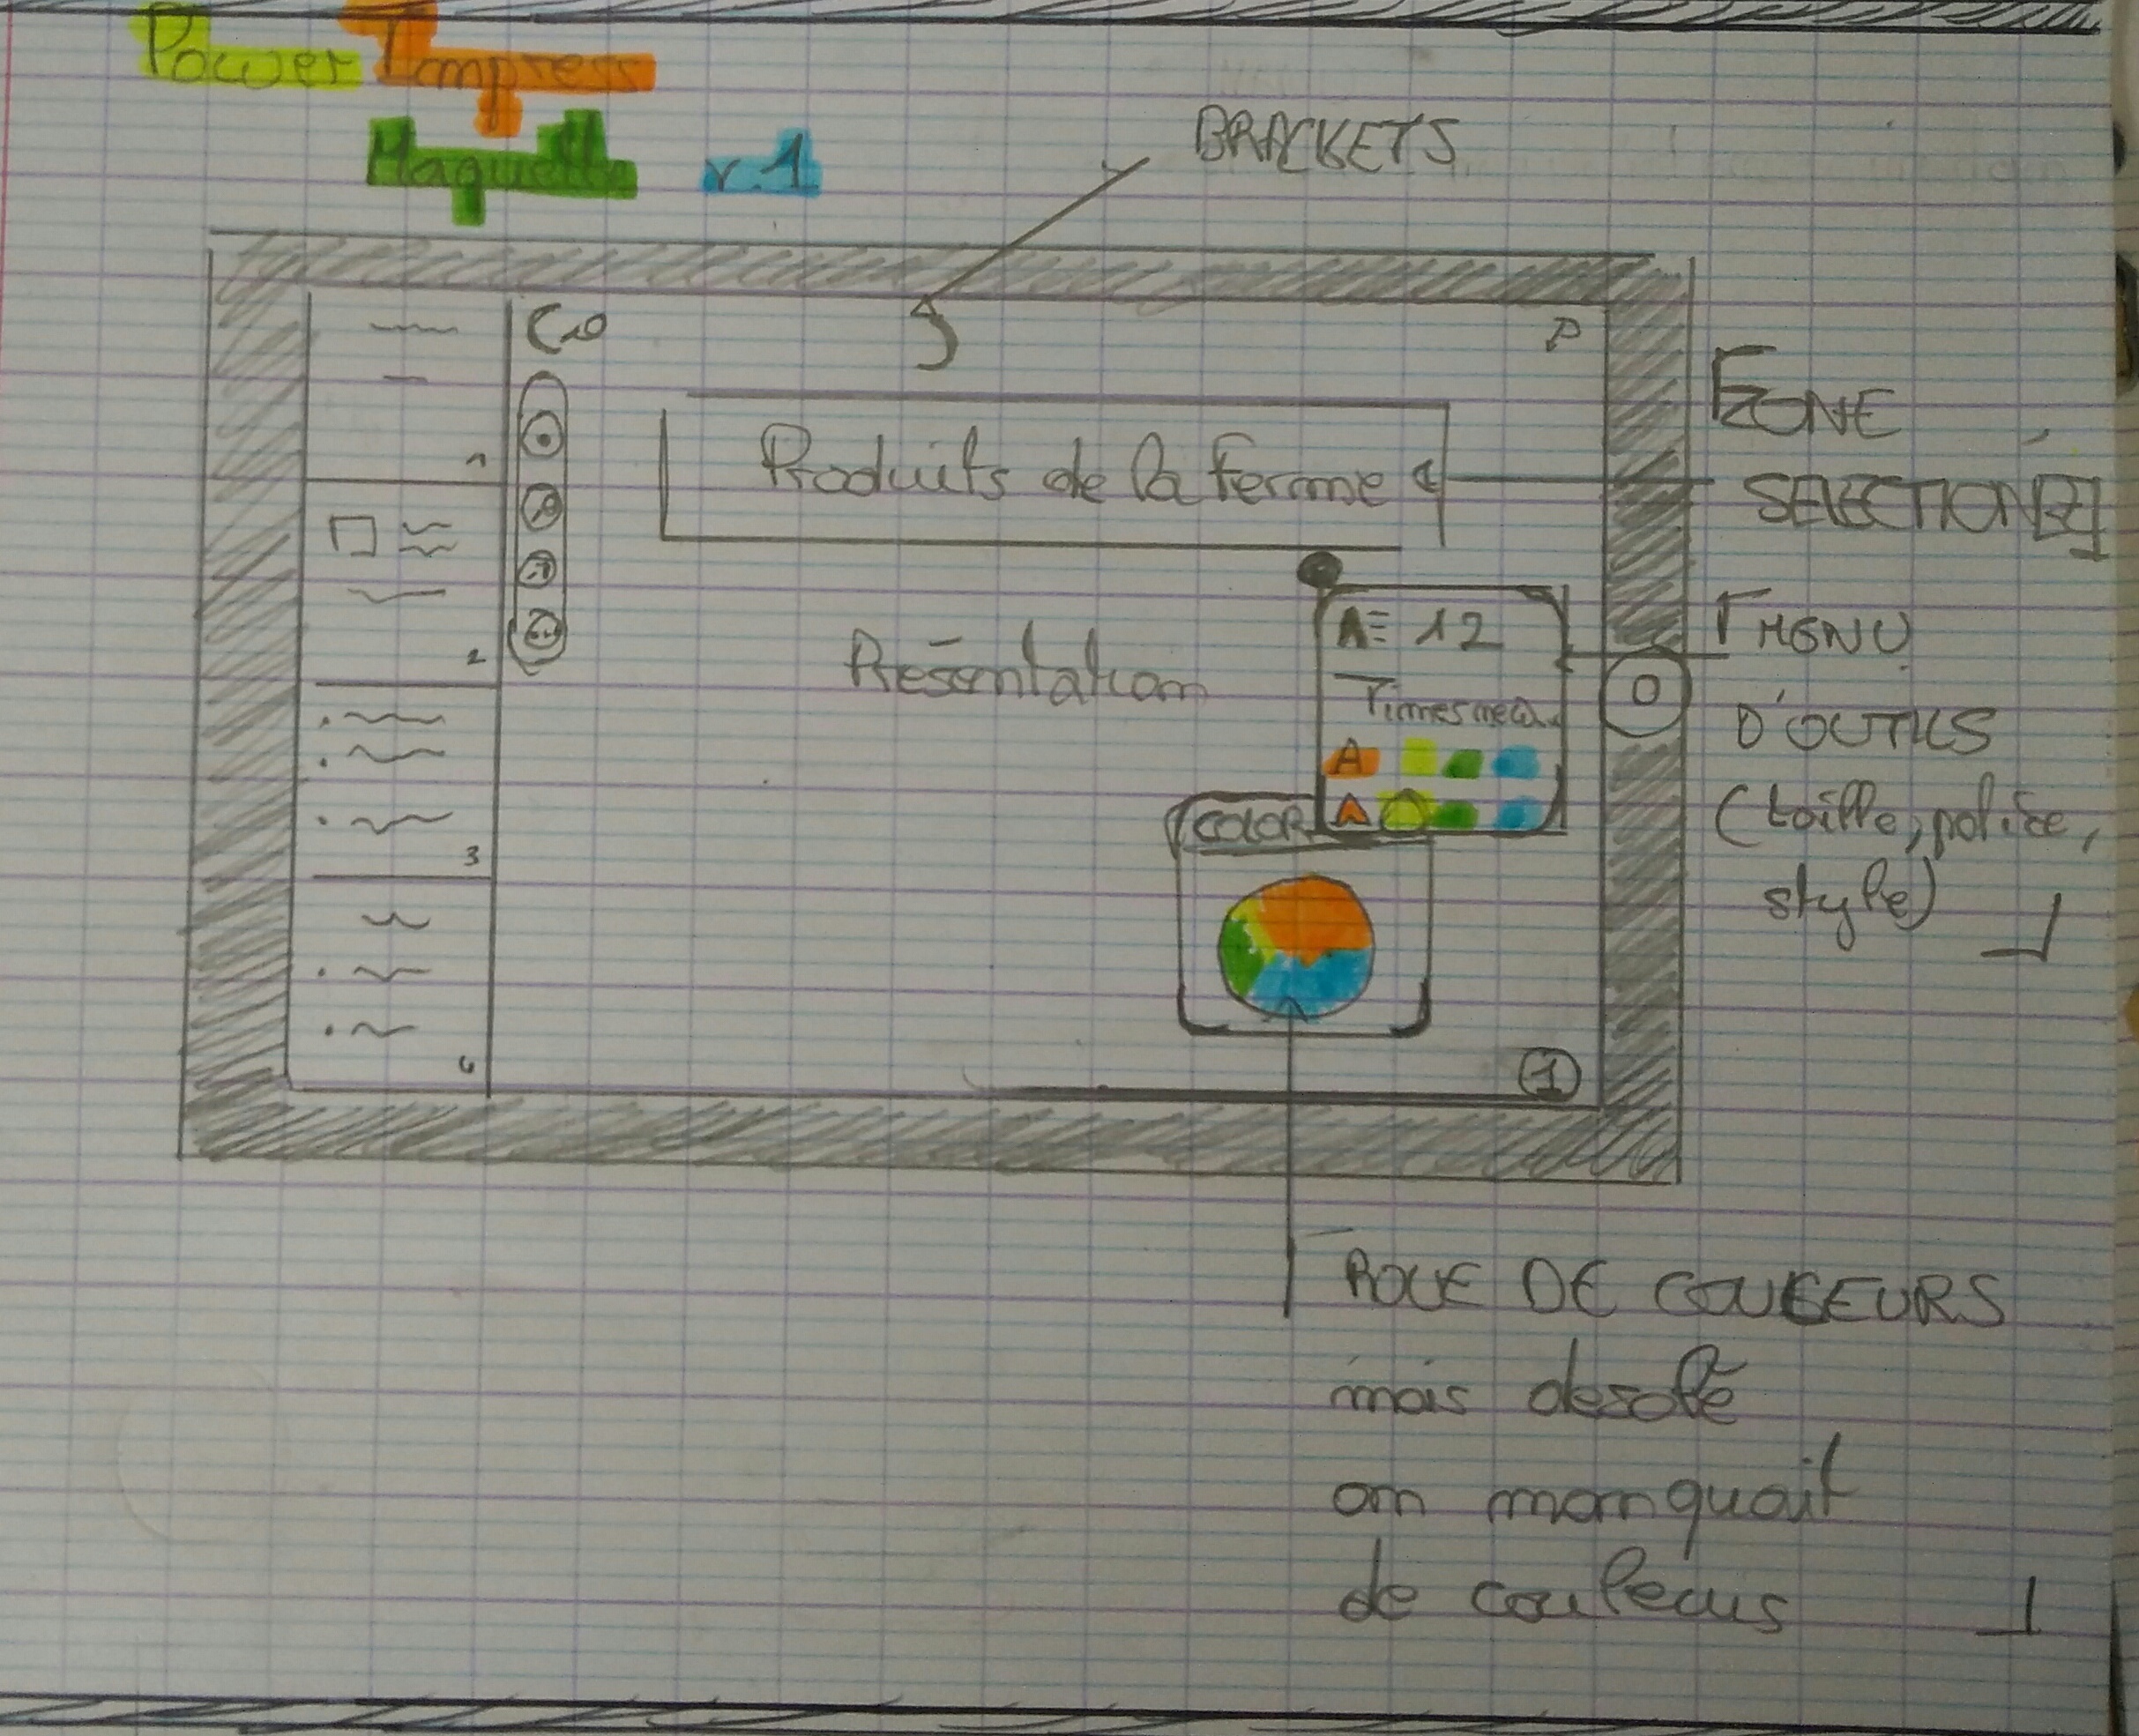 Power Impress
Maquette v.1
BRACKETS
Produits de la ferme
Présentation
1
2
3
4
A= 12
Times new.
A
A
COLOR
1
ZONE
SELECTION[NÉE]
MENU
D'OUTILS
(taille, police,
style)
ROUE DE COULEURS
mais désolé
on manquait
de couleurs